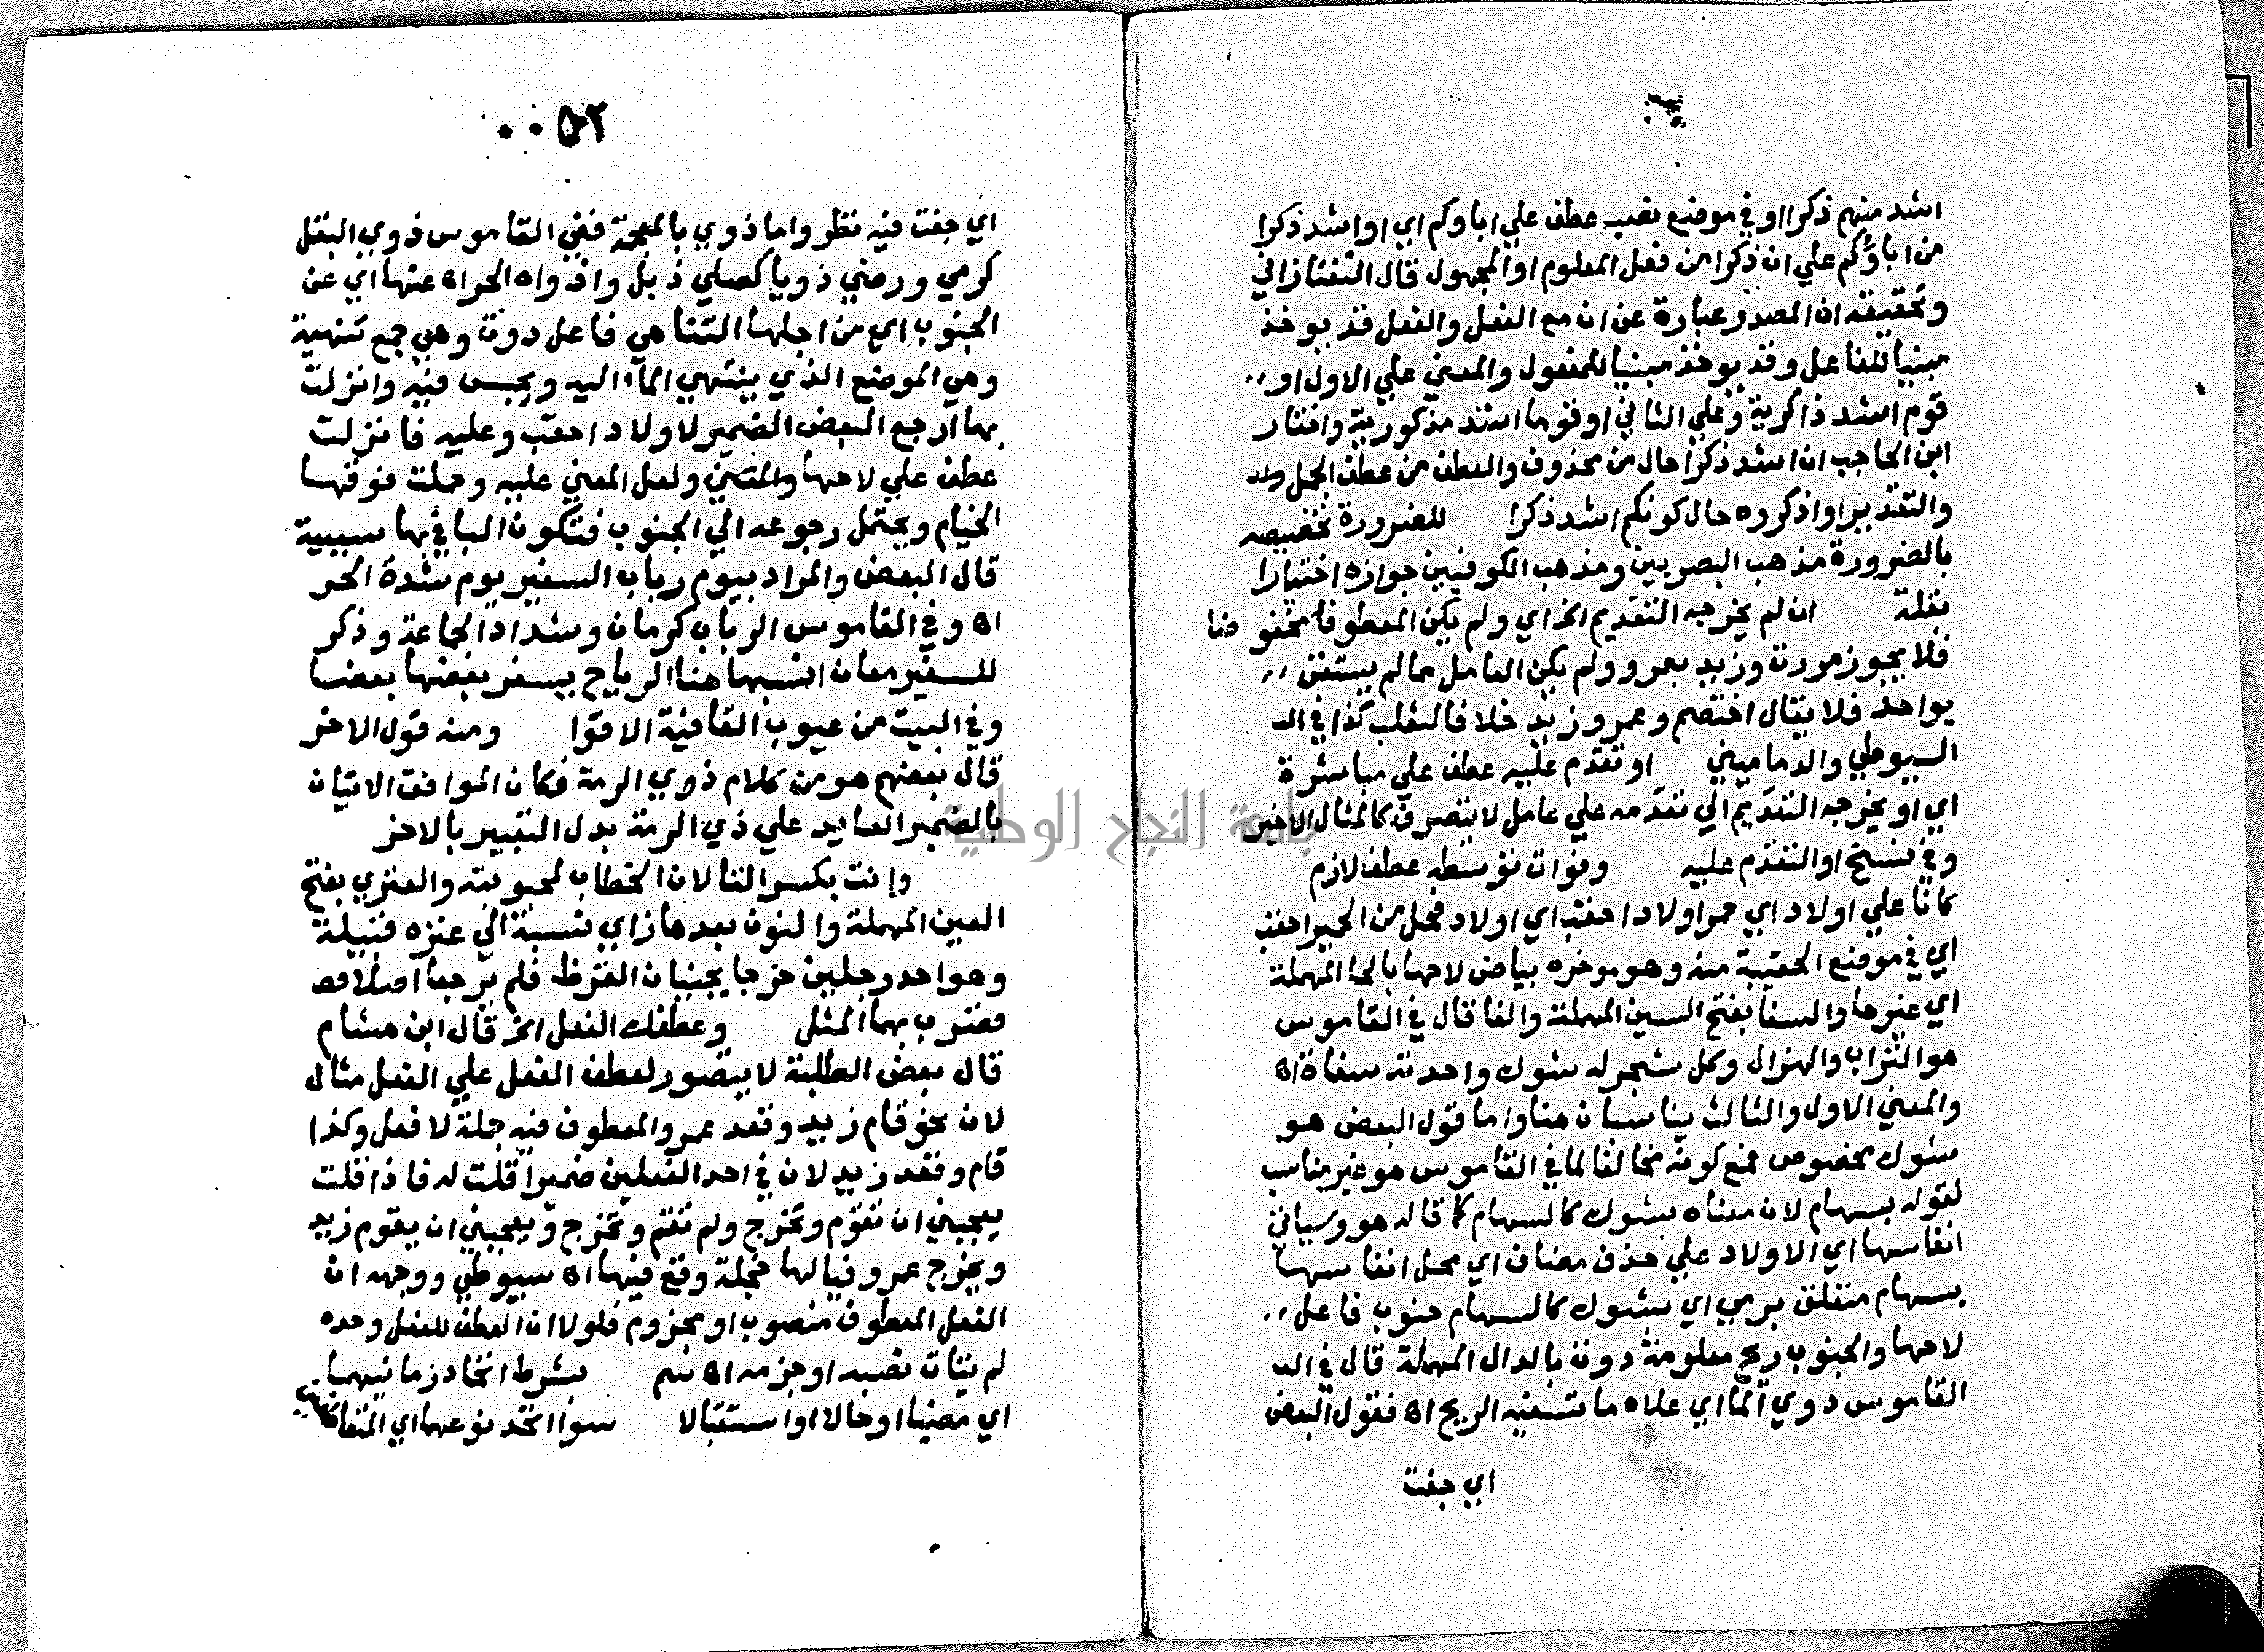 اشد منهم ذكرا او في موضع نصب عطف علي اباوكم اي او اشد ذكرا
من اباؤكم علي ان ذكرا من فعل المعلوم او المجهول قال التفتازاني
وتحقيقه ان المصدر عبارة عن ان مع الفعل والفعل قد يوخذ
مبنيا للفاعل وقد يوخذ مبنيا للمفعول والمعني علي الاول او
قوم اشد ذاكرية وعلي الثاني او قوما اشد مذكورية واختار
ابن الحاجب ان اشد ذكرا حال من محذوف والعطف من عطف الجمل
والتقدير او اذكروه حال كونكم اشد ذكرا للضرورة تخصيصه
بالضرورة مذهب البصريين ومذهب الكوفيين جوازه اختيارا
بقلة ان لم يخرجه التقديم الخ اي ولم يكن المعطوف مخفوضا
فلا يجوز مررت وزيد بعمرو ولم يكن العامل مما لم يستغن
بواحد فلا يقال اختصم وعمرو زيد خلافا لثعلب كذا في الـ
السيوطي والدماميني او تقدم عليه عطف علي مباشرة
اي او يخرجه التقديم الي تقدمه علي عامل لا يتصرف كالمثال الاخير
وفي نسخ او التقدم عليه وفوات توسطه عطف لازم
كانا علي اولاد ابي حمر اولاد احقب اي اولاد فحل من الحمير احقب
اي في موضع الحقيبة منه وهو موخره بياض لاحها بالحا المهملة
اي غيرها والسفا بفتح السين المهملة والفا قال في القاموس
هو التراب والهزال وكل شجر له شوك واحدته سفاة اه
والمعني الاول والثالث يناسبان هنا واما قول البعض هو
شوك مخصوص فمع كونه مخالفا لما في القاموس هو غير مناسب
لقوله بسهام لان معناه بشوك كالسهام كما قاله هو وسياتي
انفاسها اي الاولاد علي حذف مضاف اي محل انفاسها
بسهام متعلق برمي اي بشوك كالسهام جنوب فاعل
لاحها والجنوب ريح معلومة دوت بالدال المهملة قال في الـ
القاموس دوي الما اي علاه ما تسفيه الريح اه فقول البعض
اي جفت
٥٢
اي جفت فيه نظر واما ذوي بالمعجمة ففي القاموس ذوي البقل
كرمي ورضي ذويا كصلي ذبل واذواه الحر اه عنها اي عن
الجنوب اي من اجلها التناهي فاعل دوت وهي جمع تنهية
وهي الموضع الذي ينتهي الماء اليه ويحبس فيه وانزلت
بها ارجع البعض الضمير لاولاد احقب وعليه فانزلت
عطف علي لاحها والمعني ولعل المعني عليه وحملت فوقها
الخيام ويحتمل رجوعه الي الجنوب فتكون البا في بها سببية
قال البعض والمراد بيوم رباب السفير يوم شدة الحر
اه وفي القاموس الرباب كرمان وشداد الجماعة وذكر
للسفير معان انسبها هنا الرياح يسفر بعضها بعضا
وفي البيت من عيوب القافية الاقوا ومنه قول الاخر
قال بعضهم هو من كلام ذوي الرمة فكان الموافق الاتيان
بالضمير العايد علي ذي الرمة بدل التعبير بالاخر
وانت بكسر التا لان الخطاب لمحبوبته والعنزي بفتح
العين المهملة والنون بعدها زاي نسبة الي عنزه قبيلة
وهو احد رجلين خرجا يجنيان القرظ فلم يرجعا اصلا فصـ
فضرب بهما المثل وعطفك الفعل الخ قال ابن هشام
قال بعض الطلبة لا يتصور لعطف الفعل علي الفعل مثال
لان نحو قام زيد وقعد عمرو المعطوف فيه جملة لا فعل وكذا
قام وقعد زيد لان في احد الفعلين ضميرا قلت له فاذا قلت
يعجبني ان تقوم وتخرج ولم تقم وتخرج ويعجبني ان يقوم زيد
ويخرج عمرو فيالها خجلة وقع فيها اه سيوطي ووجهه ان
الفعل المعطوف منصوب او مجزوم فلولا ان العطف للفعل وحده
لم يتات نصبه او جزمه اه سم بشرط اتحاد زمانيهما
اي مضيا او حالا او استقبالا سوا اتحد نوعهما اي
جامعة النجاح الوطنية